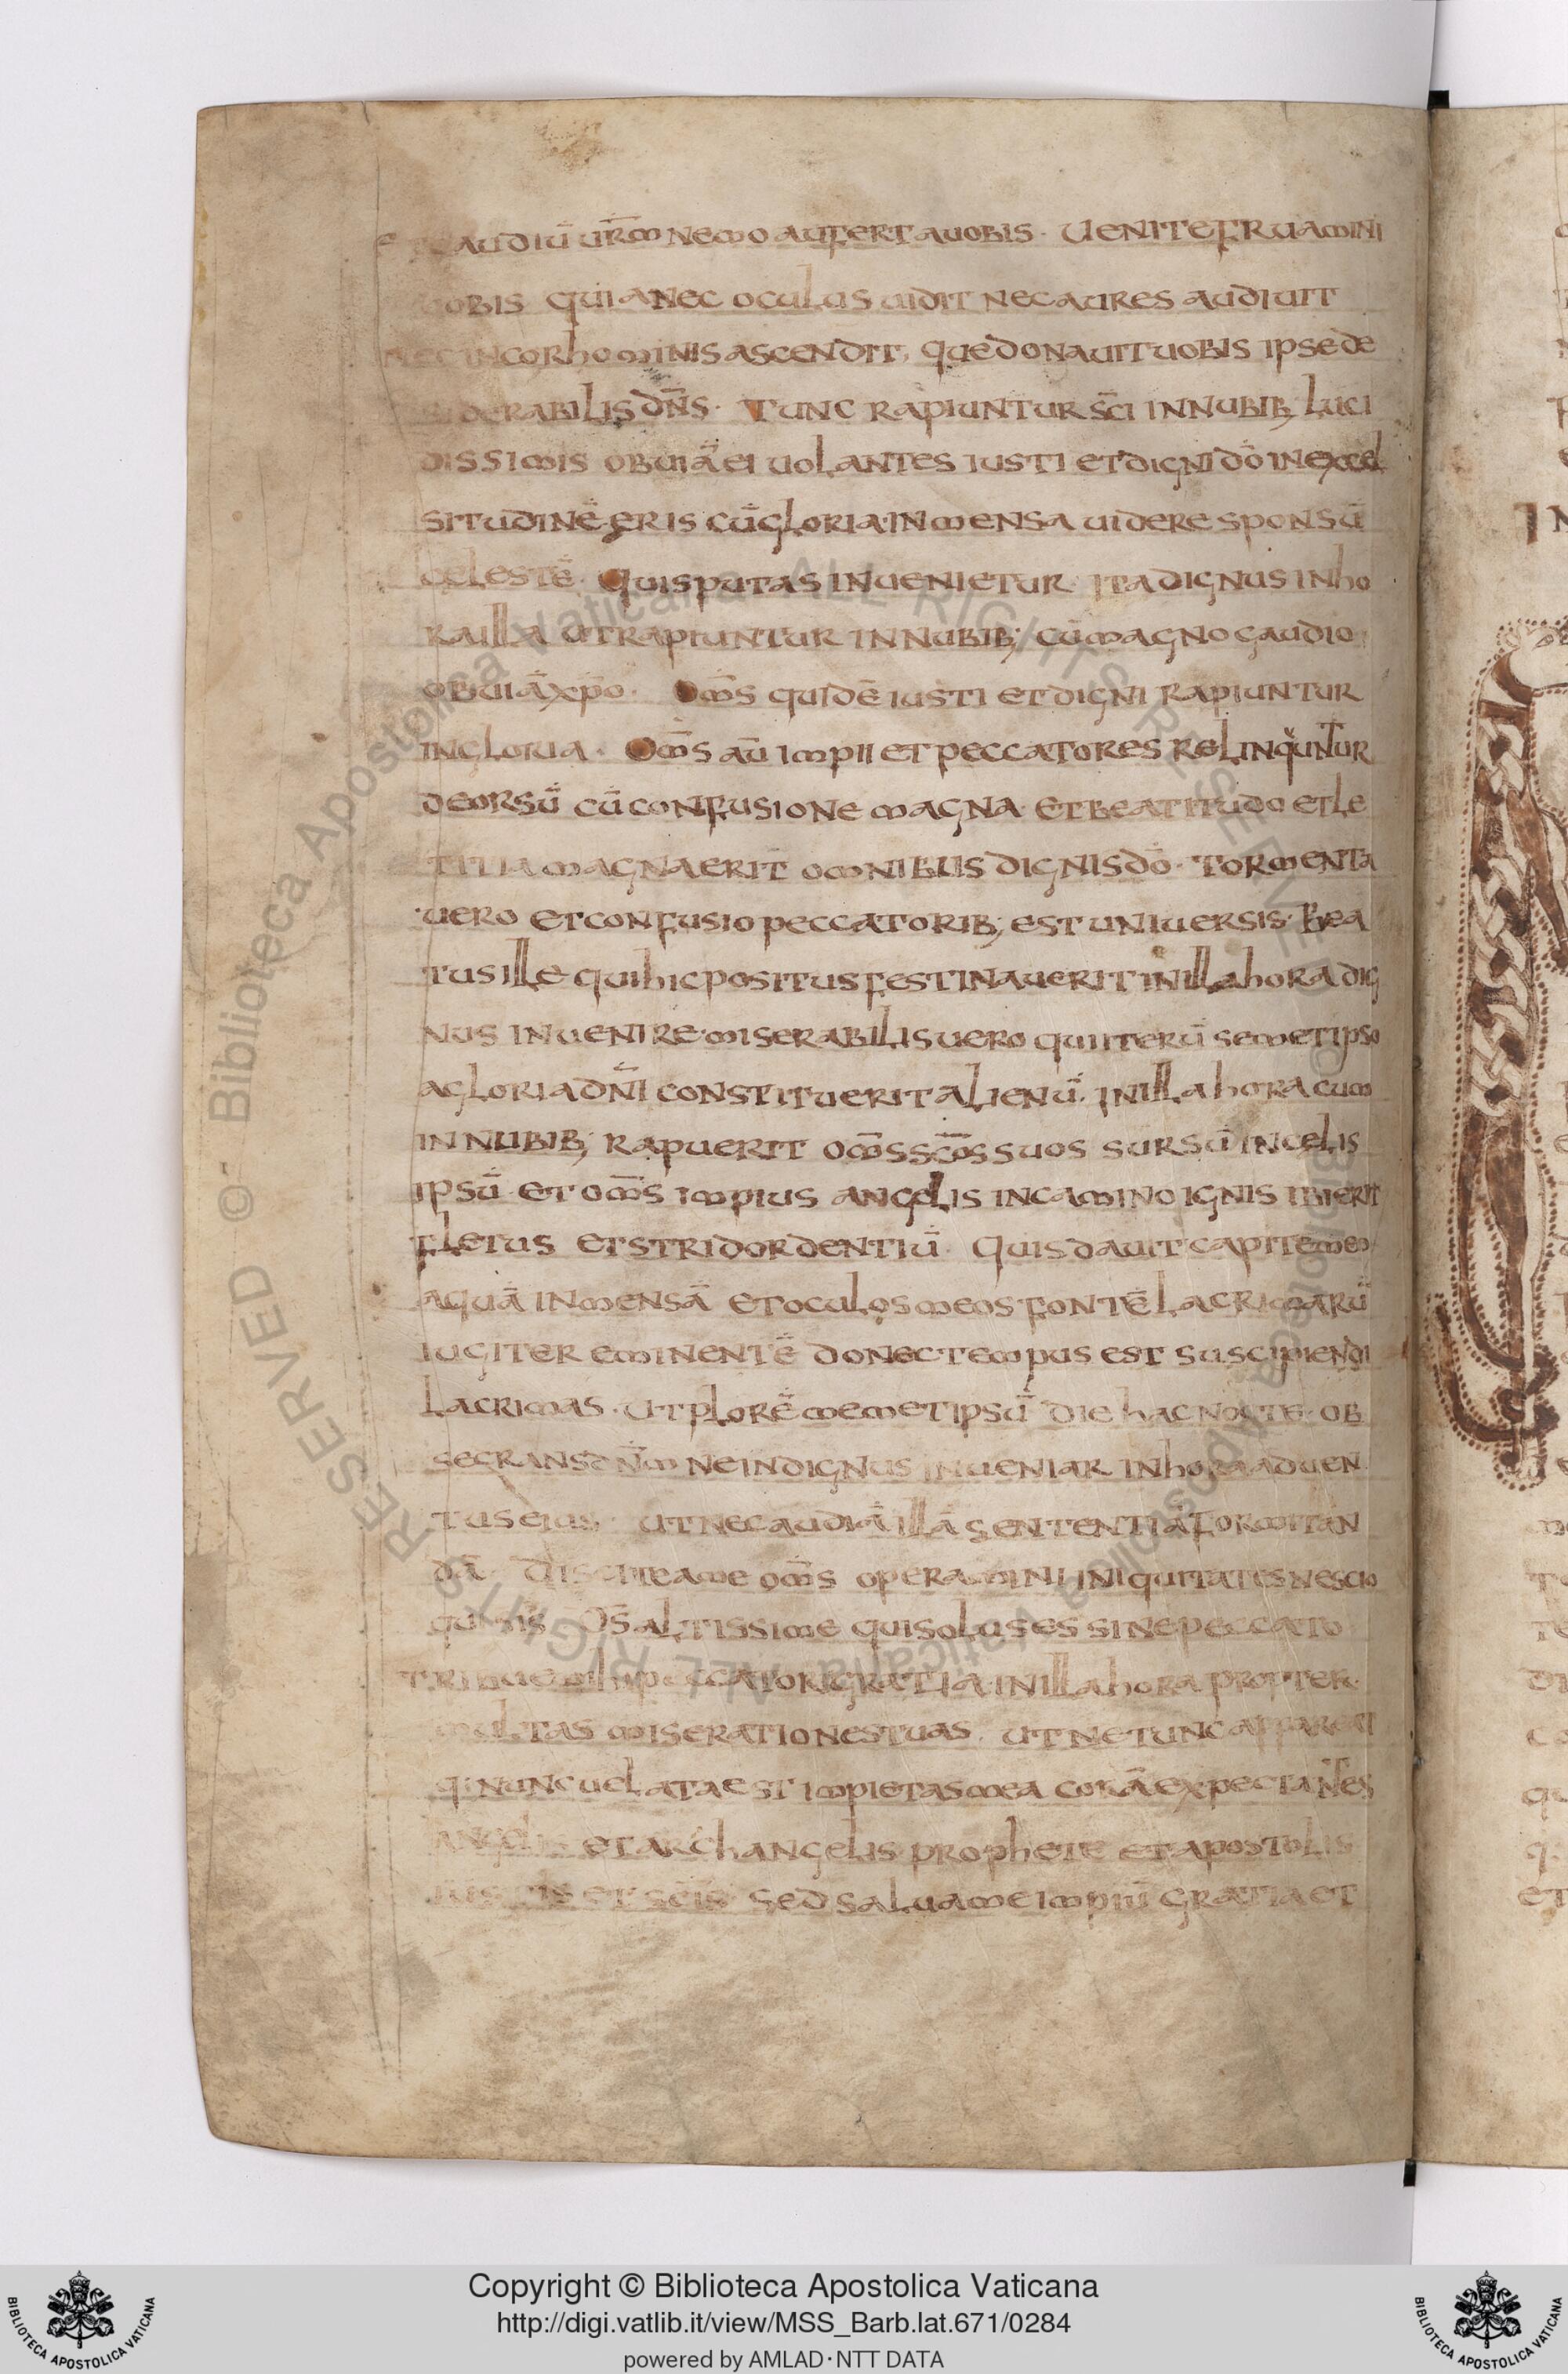 et gaudiū ur̄m nemo aufert a uobis · Uenite fruamini
uobis quia nec oculus uidit nec aures audiuit
nec in cor hominis ascendit, que donauit uobis ipse de
siderabilis dn̄s · Tunc rapiuntur sc̄i in nubib; luci
dissimis obuiā ei uolantes iusti et digni dō in excel
situdinē eris cū gloria inmensa uidere sponsū
celestē Quis putas inuenietur ita dignus in ho
ra illa ut rapiuntur in nubib; cū magno gaudio
obuiā xp̄o · Om̄s quidē iusti et digni rapiuntur
in gloria · Om̄s aū impii et peccatores relinquntur
deorsū cū confusione magna · et beatitudo et le
titia magna erit omnibus dignis dō · tormenta
uero et confusio peccatorib; est uniuersis · Bea
tus ille qui hic positus festinauerit in illa hora dig
nus inuenire · miserabilis uero qui iterū semetipso
a gloria dn̄i constituerit alienū · in illa hora cum
in nubib; rapuerit om̄s sc̄os suos sursū in celis
ipsū et om̄s impius angelis in camino ignis ibi erit
fletus et stridor dentiū · Quis dauit capite meo
aquā inmensā et oculos meos fontē lacrimarū
iugiter eminentē donec tempus est suscipiendi
lacrimas · ut plorē memetipsū die hac nocte · ob
secrans dn̄m ne indignus inueniar in hora aduen
tus eius · ut nec audiā illā sententiā formitan
dā Discite a me om̄s operamini iniquitatis nescio
D̄s altissime qui solus es sine peccato
tribue mihi peccatori gratia in illa hora propter
multas miserationes tuas · ut ne tunc appareat
q; nunc uelata est impietas mea corā expectantes
angelis et archangelis prophete et apostolis
iustis et sc̄is · sed salua me impiū gratia et
Copyright © Biblioteca Apostolica Vaticana
http://digi.vatlib.it/view/MSS_Barb.lat.671/0284
powered by AMLAD·NTT DATA